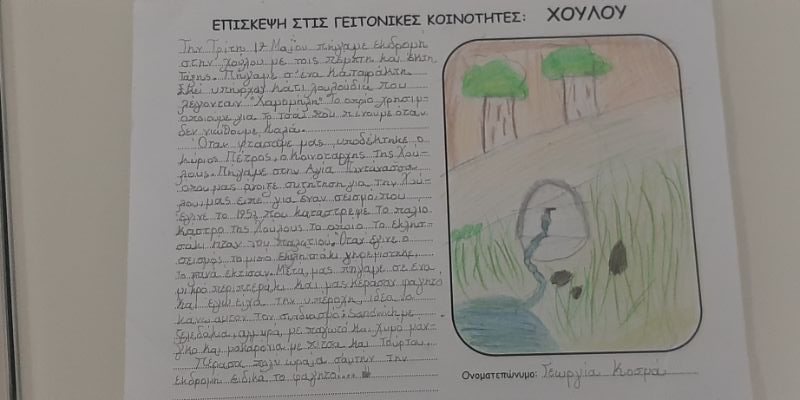 ΕΠΙΣΚΕΨΗ ΣΤΙΣ ΓΕΙΤΟΝΙΚΕΣ ΚΟΙΝΟΤΗΤΕΣ: ΧΟΥΛΟΥ
Την Τρίτη 17 Μαΐου πήγαμε εκδρομή
στην Χούλου με τοις πέμπτη και έκτη
τάξης. Πήγαμε σ'ένα καταράκτη.
Εκεί υπήρχαν κάτι λουλούδια που
λέγονταν "Χαμομήλη" Το οποίο χρησιμ-
οποιούμε για το τσάι που πίνουμε όταν
δεν νιώθουμε καλά.
Όταν φτάσαμε μας υποδέκτηκε ο
κύριος Πέτρος, ο Κοινοτάρχης της Χού-
λους. Πήγαμε στην Αγία
όπου μας άνοιξε συζήτηση για την Χού-
λου, μας είπε για έναν σεισμό που
έγινε το 1953 που κατάστρεψε το παλιό
κάστρο της Χούλους το οποίο το εκλησ-
σάκι ήταν του παλατιού. Όταν έγινε ο
σεισμός το μισό εκλησάκι γκρεμίστηκε,
το ξανά έκτισαν. Μετά, μας πήγαμε σε ένα
μικρό περιπτεράκι και μας κέρασαν φαγητό
και εγώ είχα την υπέροχη ιδέα να
κάνω αυτόν τον συνδιασμό: Sandwich με
ζελεδάκια, αλμυρά, με παγωτό και χυμό μάν-
γκο και μακαρόνια με πίτσα και τούρτα.
Πέρασα πολύ ωραία σ'αυτήν την
εκδρομή ειδικά το φαγητό!...
Ονοματεπώνυμο: Γεωργία